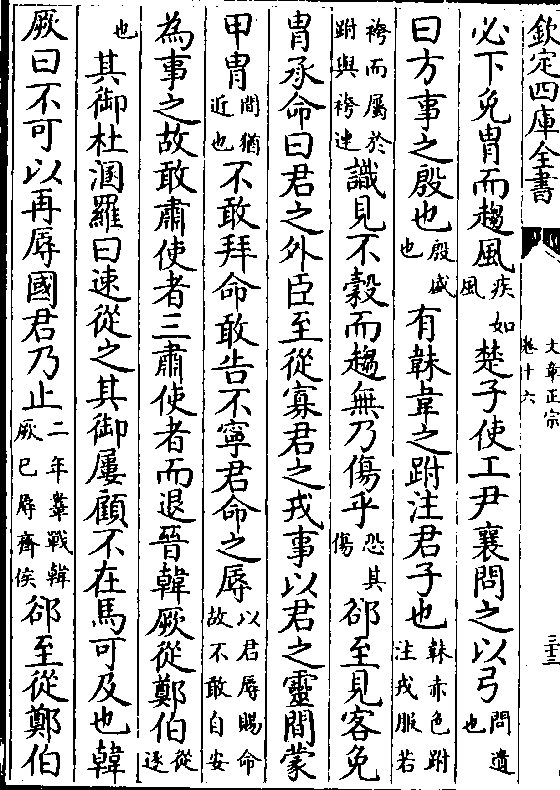 欽定四庫全書
文章正宗
卷十六
三十三
必下免胄而趨風疾如風楚子使工尹襄問之以弓問遺也
曰方事之殷也殷盛也有韎韋之跗注君子也韎赤色跗注戎服若
袴而屬於跗與袴連識見不穀而趨無乃傷乎恐其傷郤至見客免
胄承命曰君之外臣至從寡君之戎事以君之靈間蒙
甲胄間猶近也不敢拜命敢告不寧君命之辱以君辱賜命故不敢自安
為事之故敢肅使者三肅使者而退晉韓厥從鄭伯從逐
也其御杜溷羅曰速從之其御屢顧不在馬可及也韓
厥曰不可以再辱國君乃止二年鞌戰韓厥已辱齊侯郤至從鄭伯